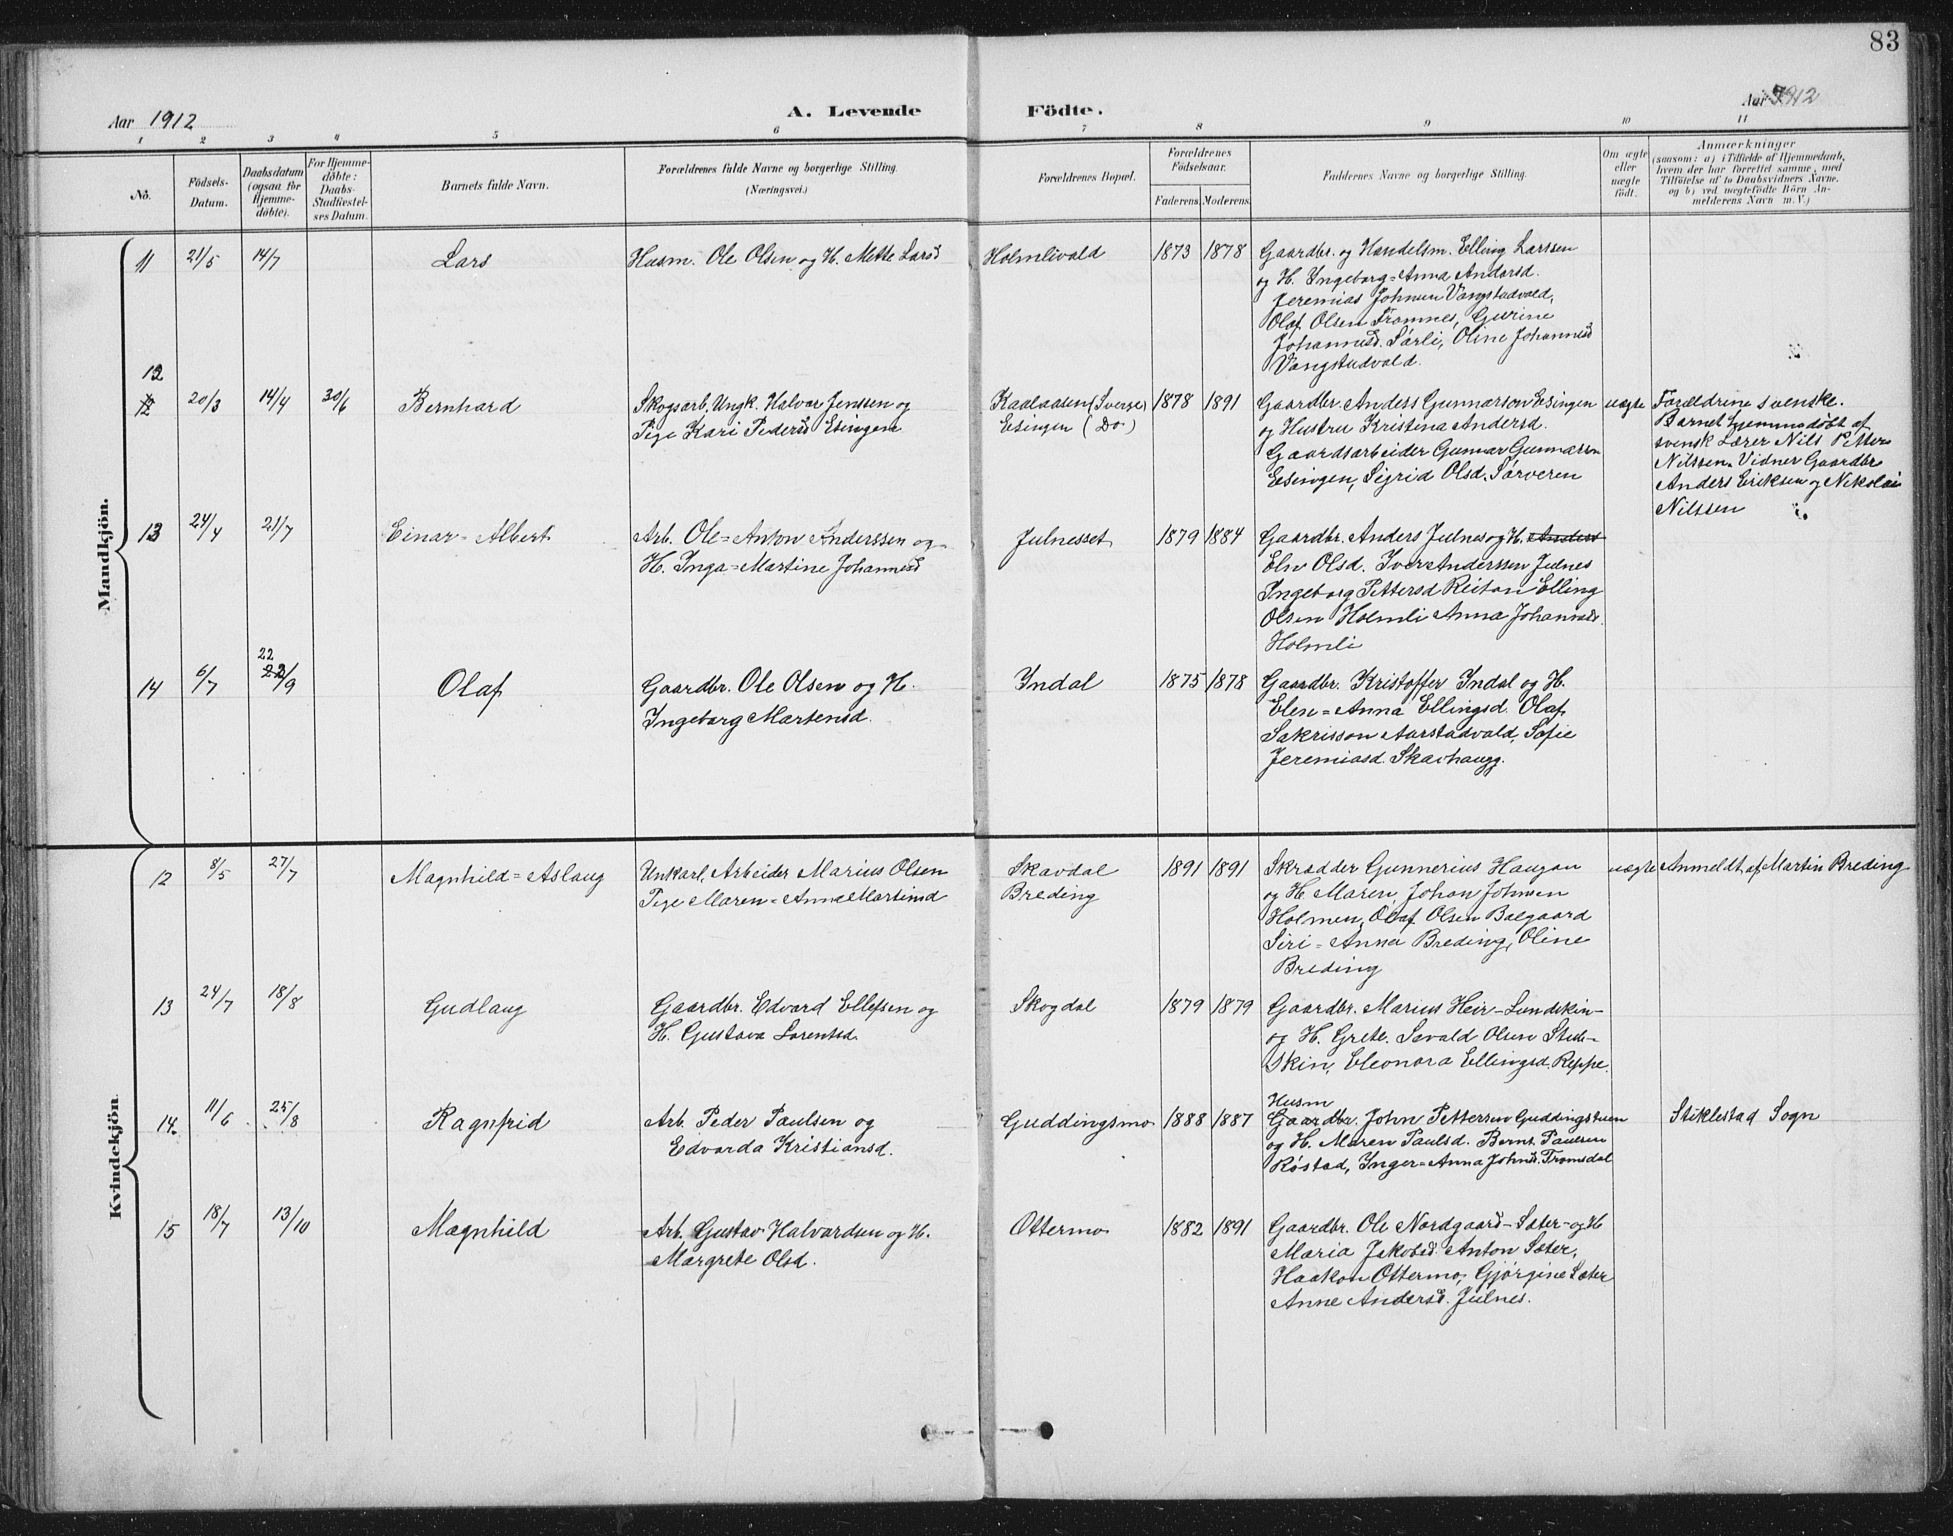 83
Aar 1912
A. Levende Födte.
Aar 1912
1 2 3 4 5 6 7 8 9 10 11
No.
Födsels-
Datum.
Daabsdatum
(ogsaa for
Hjemme-
døbte).
For Hjemme-
døbte:
Daabs-
Stadfæstel-
ses Datum.
Barnets fulde Navn.
Forældrenes fulde Navne og borgerlige Stilling.
(Næringsvei.)
Forældrenes Bopæl.
Forældrenes
Födselsaar.
Faderens. Moderens.
Faddernes Navne og borgerlige Stilling.
Om ægte
eller
uægte
födt.
Anmærkninger
(saasom: a) i Tilfælde af Hjemmedaab,
hvem der har forrettet samme, med
Tilföielse af to Daabsvidners Navne.
og b) ved uegtefödte Börn An-
melderens Navn m. V.)
Mandkjön.
11 21/5 14/7 Lars
Husm. Ole Olsen og H. Mette Larsd
Holmlivald 1873 1878
Gaardbr. og Handelsm. Elling Larssen
og H. Ingeborg=Anna Andersd.
Jeremias Johnsen Vangstadvald,
Olaf Olsen Tromnes, Gurine
Johannesd. Sørli, Oline Johannesd
Vangstadvald.
12
12 20/3 14/4 30/6 Bernhard
Skogsarb. Ungk. Halvar Jenssen og
Pige Kari Pedersd Esingen
Kaalaasen (Sverge) 1878 1891
Esingen (Do)
Gaardbr. Anders Gunnarson Esingen
og Hustru Kristina Andersd.
Gaardsarbeider Gunnar Gunnarson
Esingen, Sigrid Olsd. Sørveren
uægte
Forældrene svenske.
Barnet hjemmedøbt af
svensk Lærer Nils Petter
Nilssen. Vidner Gaardbr
Anders Eriksen og Nikolai
Nilssen
13 24/4 21/7 Einar=Albert
Arb. Ole=Anton Anderssen og
H. Inga=Martine Johannesd
Julnesset 1879 1884
Gaardbr. Anders Julnes og H. Anders
Eln Olsd. Iver Anderssen Julnes
Ingeborg Pettersd Reitan Elling
Olsen Holmli Anna Johannesd.
Holmli
14 6/7 22
22/9 Olaf
Gaardbr. Ole Olsen og H.
Ingeborg Martensd.
Indal 1875 1878
Gaardbr. Kristoffer Indal og H.
Elen=Anna Ellingsd. Olaf
Sakrisson Aarstadvald, Sofie
Jeremiasd. Skavhaugg.
Kvindekjön.
12 8/5 27/7 Magnhild=Aslaug
Unkarl, Arbeider Marius Olsen
Pige Maren=Anna Martinsd
Skavdal 1891 1891
Breding
Skrædder Gunnerius Haugan
og H. Maren, Johan Johnsen
Holmen, Olaf Olsen Balgaard
Siri=Anna Breding, Oline
Breding
uægte Anmeldt af Martin Breding
13 24/7 18/8 Gudlaug
Gaardbr. Edvard Ellefsen og
H. Gustava Lorentsd.
Skogdal 1879 1879
Gaardbr. Marius Heir-Lundskin-
og H. Grete. Sevald Olsen Stub-
Skin, Eleonora Ellingsd. Reppe.
14. 11/6 25/8 Ragnfrid
Arb. Peder Paulsen og
Edvarda Kristiansd.
Guddingsmo 1888 1887
Husm
Gaardbr. John Pettersen Guddingstuen
og H. Maren Paulsd. Bernt Paulsen
Røstad, Inger=Anna Johnsd. Tromsdal
Stiklestad Sogn
15 18/7 13/10 Magnhild
Arb. Gustav Halvardsen og H.
Margrete Olsd.
Ottermo 1882 1891
Gaardbr. Ole Nordgaard-Sæter-og H
Maria Jakobsd. Anton Sæter,
Haakon Ottermo, Gjørgine Sæter
Anne Andersd. Julnes.